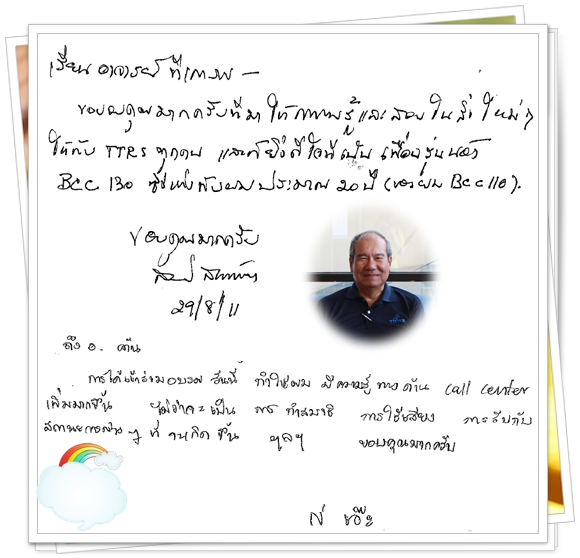 เรียน อาจารย์ ที่เคารพ –
ขอบคุณมากครับที่มา ให้ความรู้และสอน ในสิ่งใหม่ๆ
ให้กับ TTRS ทุกคน และก็ยิ่งดีใจที่เป็น เพื่อนรุ่นน้อง
BCC 130 ซึ่งห่างกับผม ประมาณ 20 ปี (ของผม BCC 110).
ขอบคุณมากครับ
29/8/11
ถึง อ.
การได้เข้าร่วมอบรม วันนี้ ทำให้ผม มีความรู้ ทางด้าน call center
เพิ่มมากขึ้น ไม่ว่าจะเป็น การ ทำสมาธิ การใช้เสียง การรับกับ
สถานะการณ์ต่าง ๆ ที่ จะเกิด ขึ้น ฯลฯ ขอบคุณมากครับ